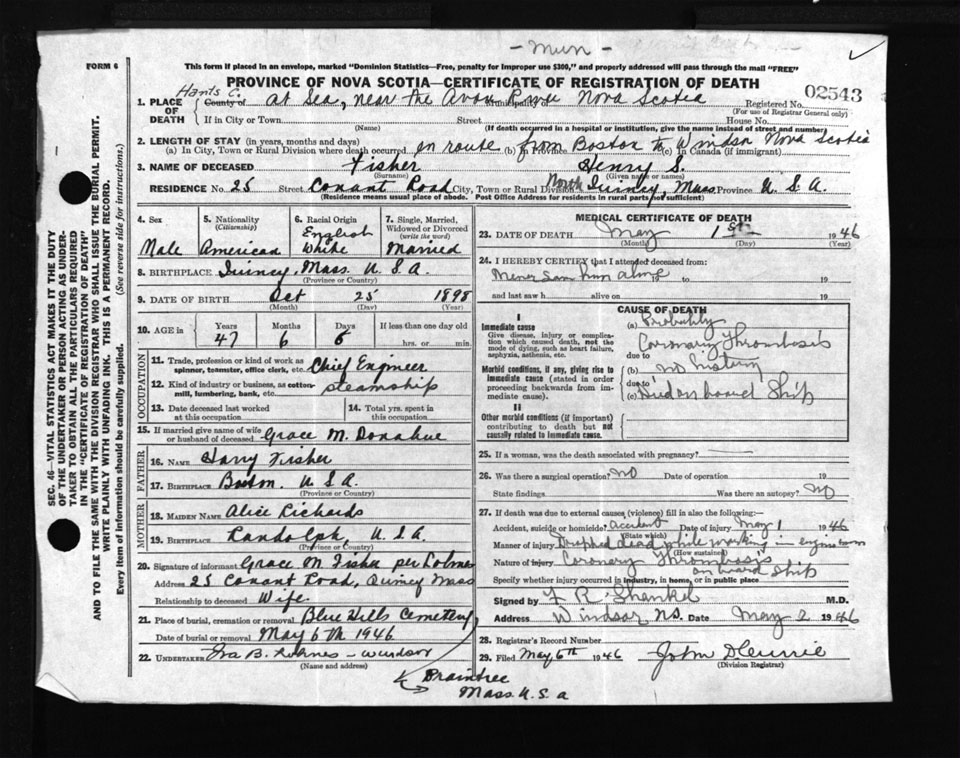 - Mun -
FORM 6
This form if placed in an envelope, marked "Dominion Statistics—Free, penalty for improper use $300," and properly addressed will pass through the mail "FREE"
PROVINCE OF NOVA SCOTIA—CERTIFICATE OF REGISTRATION OF DEATH
02543
Hants C.
1. PLACE OF DEATH County of At Sea, near the Avon Nova Scotia Registered No.
(For use of Registrar General only)
If in City or Town Street House No.
(Name) (If death occurred in a hospital or institution, give the name instead of street and number)
2. LENGTH OF STAY (in years, months and days)
(a) In City, Town or Rural Division where death occurred en route (b) In Province from Boston to (c) in Canada (if immigrant) Windsor Nova Scotia
3. NAME OF DECEASED Fisher Henry S.
(Surname) (Given name or names)
RESIDENCE No. 25 Street Conant Road City, Town or Rural Division North Quincy, Mass. Province U. S. A.
(Residence means usual place of abode. Post Office Address for residents in rural parts not sufficient)
4. Sex Male
5. Nationality (Citizenship) American
6. Racial Origin English White
7. Single, Married, Widowed or Divorced (write the word) Married
8. BIRTHPLACE Quincy, Mass. U. S. A.
(Province or Country)
9. DATE OF BIRTH Oct 25 1898
(Month) (Day) (Year)
10. AGE in Years Months Days If less than one day old
47 6 6 hrs. or min.
OCCUPATION
11. Trade, profession or kind of work as spinner, teamster, office clerk, etc. Chief Engineer
12. Kind of industry or business, as cotton-mill, lumbering, bank, etc. steamship
13. Date deceased last worked at this occupation
14. Total yrs. spent in this occupation
15. If married give name of wife or husband of deceased Grace M. Donahue
FATHER
16. NAME Harry Fisher
17. BIRTHPLACE Boston. U.S.A.
(Province or Country)
MOTHER
18. MAIDEN NAME Alice Richards
19. BIRTHPLACE Randolph, U.S.A.
(Province or Country)
20. Signature of informant Grace M. Fisher per
Address 25 Conant Road, Quincy Mass
Relationship to deceased Wife.
21. Place of burial, cremation or removal Blue Hills Cemetery
Date of burial or removal May 6th 1946
22. UNDERTAKER Ira B. - Windsor
(Name and address)
Braintree
Mass. U.S.a
MEDICAL CERTIFICATE OF DEATH
23. DATE OF DEATH May 1st 1946
(Month) (Day) (Year)
24. I HEREBY CERTIFY that I attended deceased from:
Never saw him alive to 19
and last saw h alive on 19
CAUSE OF DEATH
I
Immediate cause
Give disease, injury or complication which caused death, not the mode of dying, such as heart failure, asphyxia, asthenia, etc.
(a) Probably
Coronary Thrombosis
due to
Morbid conditions, if any, giving rise to immediate cause (stated in order proceeding backwards from immediate cause).
(b) no history
due to
(c) Died on board Ship
II
Other morbid conditions (if important) contributing to death but not causally related to immediate cause.
25. If a woman, was the death associated with pregnancy?
26. Was there a surgical operation? NO Date of operation 19
State findings Was there an autopsy? NO
27. If death was due to external causes (violence) fill in also the following:—
Accident, suicide or homicide? accident Date of injury May 1 1946
(State which)
Manner of injury Dropped dead while working in engine room
(How sustained)
Nature of injury Coronary Thrombosis on board Ship
Specify whether injury occurred in industry, in home, or in public place
Signed by F R Shankel M.D.
Address Windsor NS. Date May 2 1946
28. Registrar's Record Number
29. Filed May 6th 1946 John
(Division Registrar)
SEC. 46—VITAL STATISTICS ACT MAKES IT THE DUTY
OF THE UNDERTAKER OR PERSON ACTING AS UNDER-
TAKER TO OBTAIN ALL THE PARTICULARS REQUIRED
IN THE "CERTIFICATE OF REGISTRATION OF DEATH"
AND TO FILE THE SAME WITH THE DIVISION REGISTRAR WHO SHALL ISSUE THE BURIAL PERMIT.
WRITE PLAINLY WITH UNFADING INK. THIS IS A PERMANENT RECORD.
Every item of information should be carefully supplied. (See reverse side for instructions.)